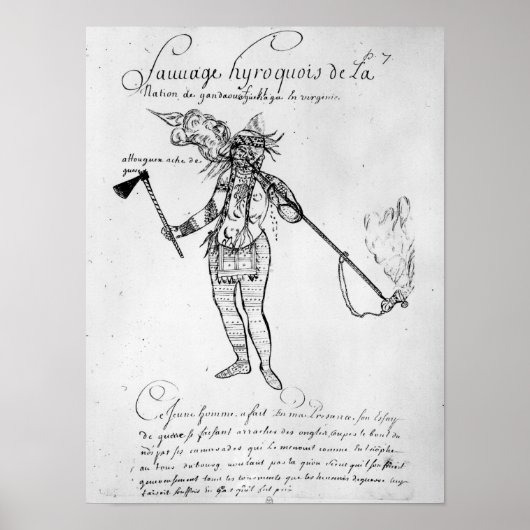 P. 7
Sauvage hyroquois de La
Nation de gandaouaguehaga en virginie.
attouguen ache de
guerre
Ce Jeune homme a fait En ma Presance, son Essay
de guerre se faisant arracher des ongles, coupes le bout du
nés par ses camarades qui le menoient comme En triophe
au tour du bourg voulant par la quon vit quil souffriroit
genereusement tous les tourments que les
faisoit souffrir En Cas quil fut pris